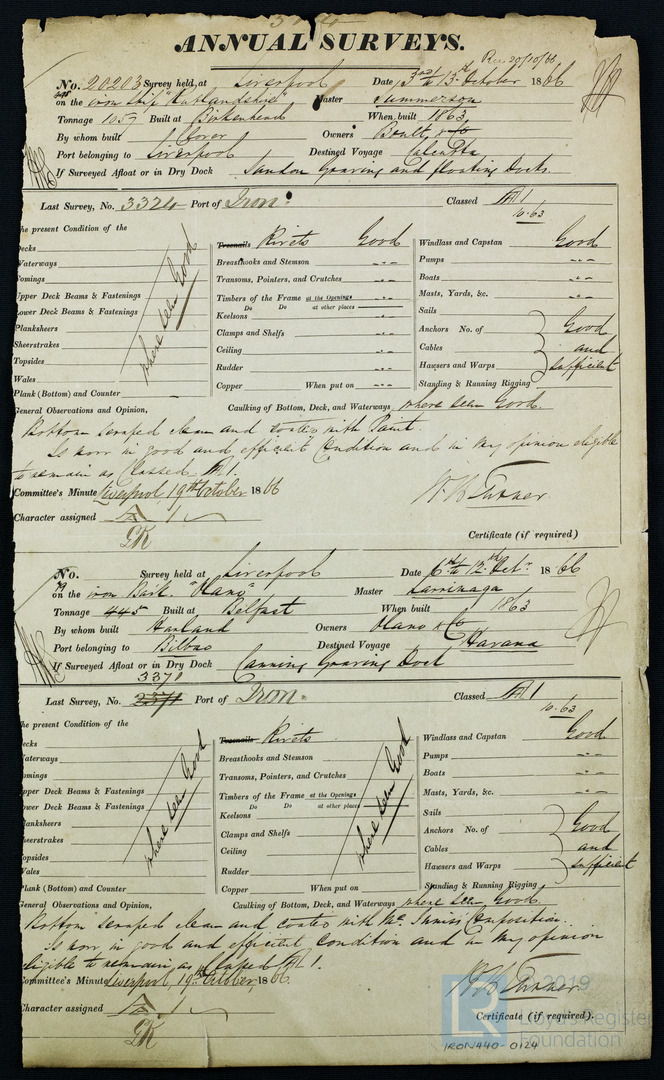 ANNUAL SURVEYS.
Rec 20/10/66
No. 20203 Survey held at Liverpool Date 3rd to 13th October 1866
on the iron Ship "Rutlandshire" Master Summerson
Tonnage 1057 Built at Birkenhead When built 1863
By whom built Clover Owners Boult, & Co
Port belonging to Liverpool Destined Voyage Calcutta
If Surveyed Afloat or in Dry Dock Sandon Graving and floating Docks.
Last Survey, No. 3324 Port of Iron. Classed A 1
10.63
he present Condition of the
Decks
Waterways
omings
Upper Deck Beams & Fastenings
Lower Deck Beams & Fastenings
Planksheers
Sheerstrakes
Topsides
Wales
Plank (Bottom) and Counter
where seen Good
Treenails Rivets Good
Breasthooks and Stemson " - "
Transoms, Pointers, and Crutches " - "
Timbers of the Frame at the Openings " - "
Do Do at other places
Keelsons " - "
Clamps and Shelfs " - "
Ceiling " - "
Rudder " - "
Copper When put on " - "
Windlass and Capstan Good
Pumps " - "
Boats " - "
Masts, Yards, &c. " - "
Sails
Anchors No. of Good
Cables and
Hawsers and Warps sufficient
Standing & Running Rigging
General Observations and Opinion, Caulking of Bottom, Deck, and Waterways where seen Good.
Bottom scraped clean and coated with Paint.
Is now in good and efficient Condition and in my opinion eligible
to remain as Classed A 1.
Committee's Minute Liverpool, 19th October 1866
W. B. Turner
Character assigned A 1
Certificate (if required)
No. Survey held at Liverpool Date 6th to 12th Octr. 1866
on the iron Bark "Olano" Master Larrinaga
Tonnage 445 Built at Belfast When built 1863
By whom built Harland Owners Olano & Co
Port belonging to Bilbao Destined Voyage Havana
If Surveyed Afloat or in Dry Dock Canning Graving Dock
3370
Last Survey, No. 2371 Port of Iron. Classed A 1
10.63
he present Condition of the
ecks
aterways
omings
pper Deck Beams & Fastenings
ower Deck Beams & Fastenings
lanksheers
heerstrakes
opsides
Wales
Plank (Bottom) and Counter
where seen Good
Treenails Rivets
Breasthooks and Stemson
Transoms, Pointers, and Crutches
Timbers of the Frame at the Openings
Do Do at other places
Keelsons
Clamps and Shelfs
Ceiling
Rudder
Copper When put on
where seen Good
Windlass and Capstan Good
Pumps " - "
Boats " - "
Masts, Yards, &c. " - "
Sails
Anchors No. of Good
Cables and
Hawsers and Warps sufficient
Standing & Running Rigging
General Observations and Opinion, Caulking of Bottom, Deck, and Waterways where seen Good.
Bottom scraped clean and coated with Mc Innis Composition.
Is now in good and efficient Condition and in my opinion
eligible to remain as Classed A 1.
Committee's Minute Liverpool, 19th October, 1866.
W. B. Turner
Character assigned A 1
Certificate (if required).
2019
LR Lloyd's Register
Foundation
IRON440-0124